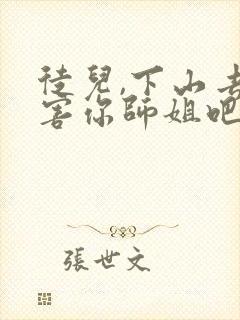 徒兒,下山去
害你師姐吧
張世文